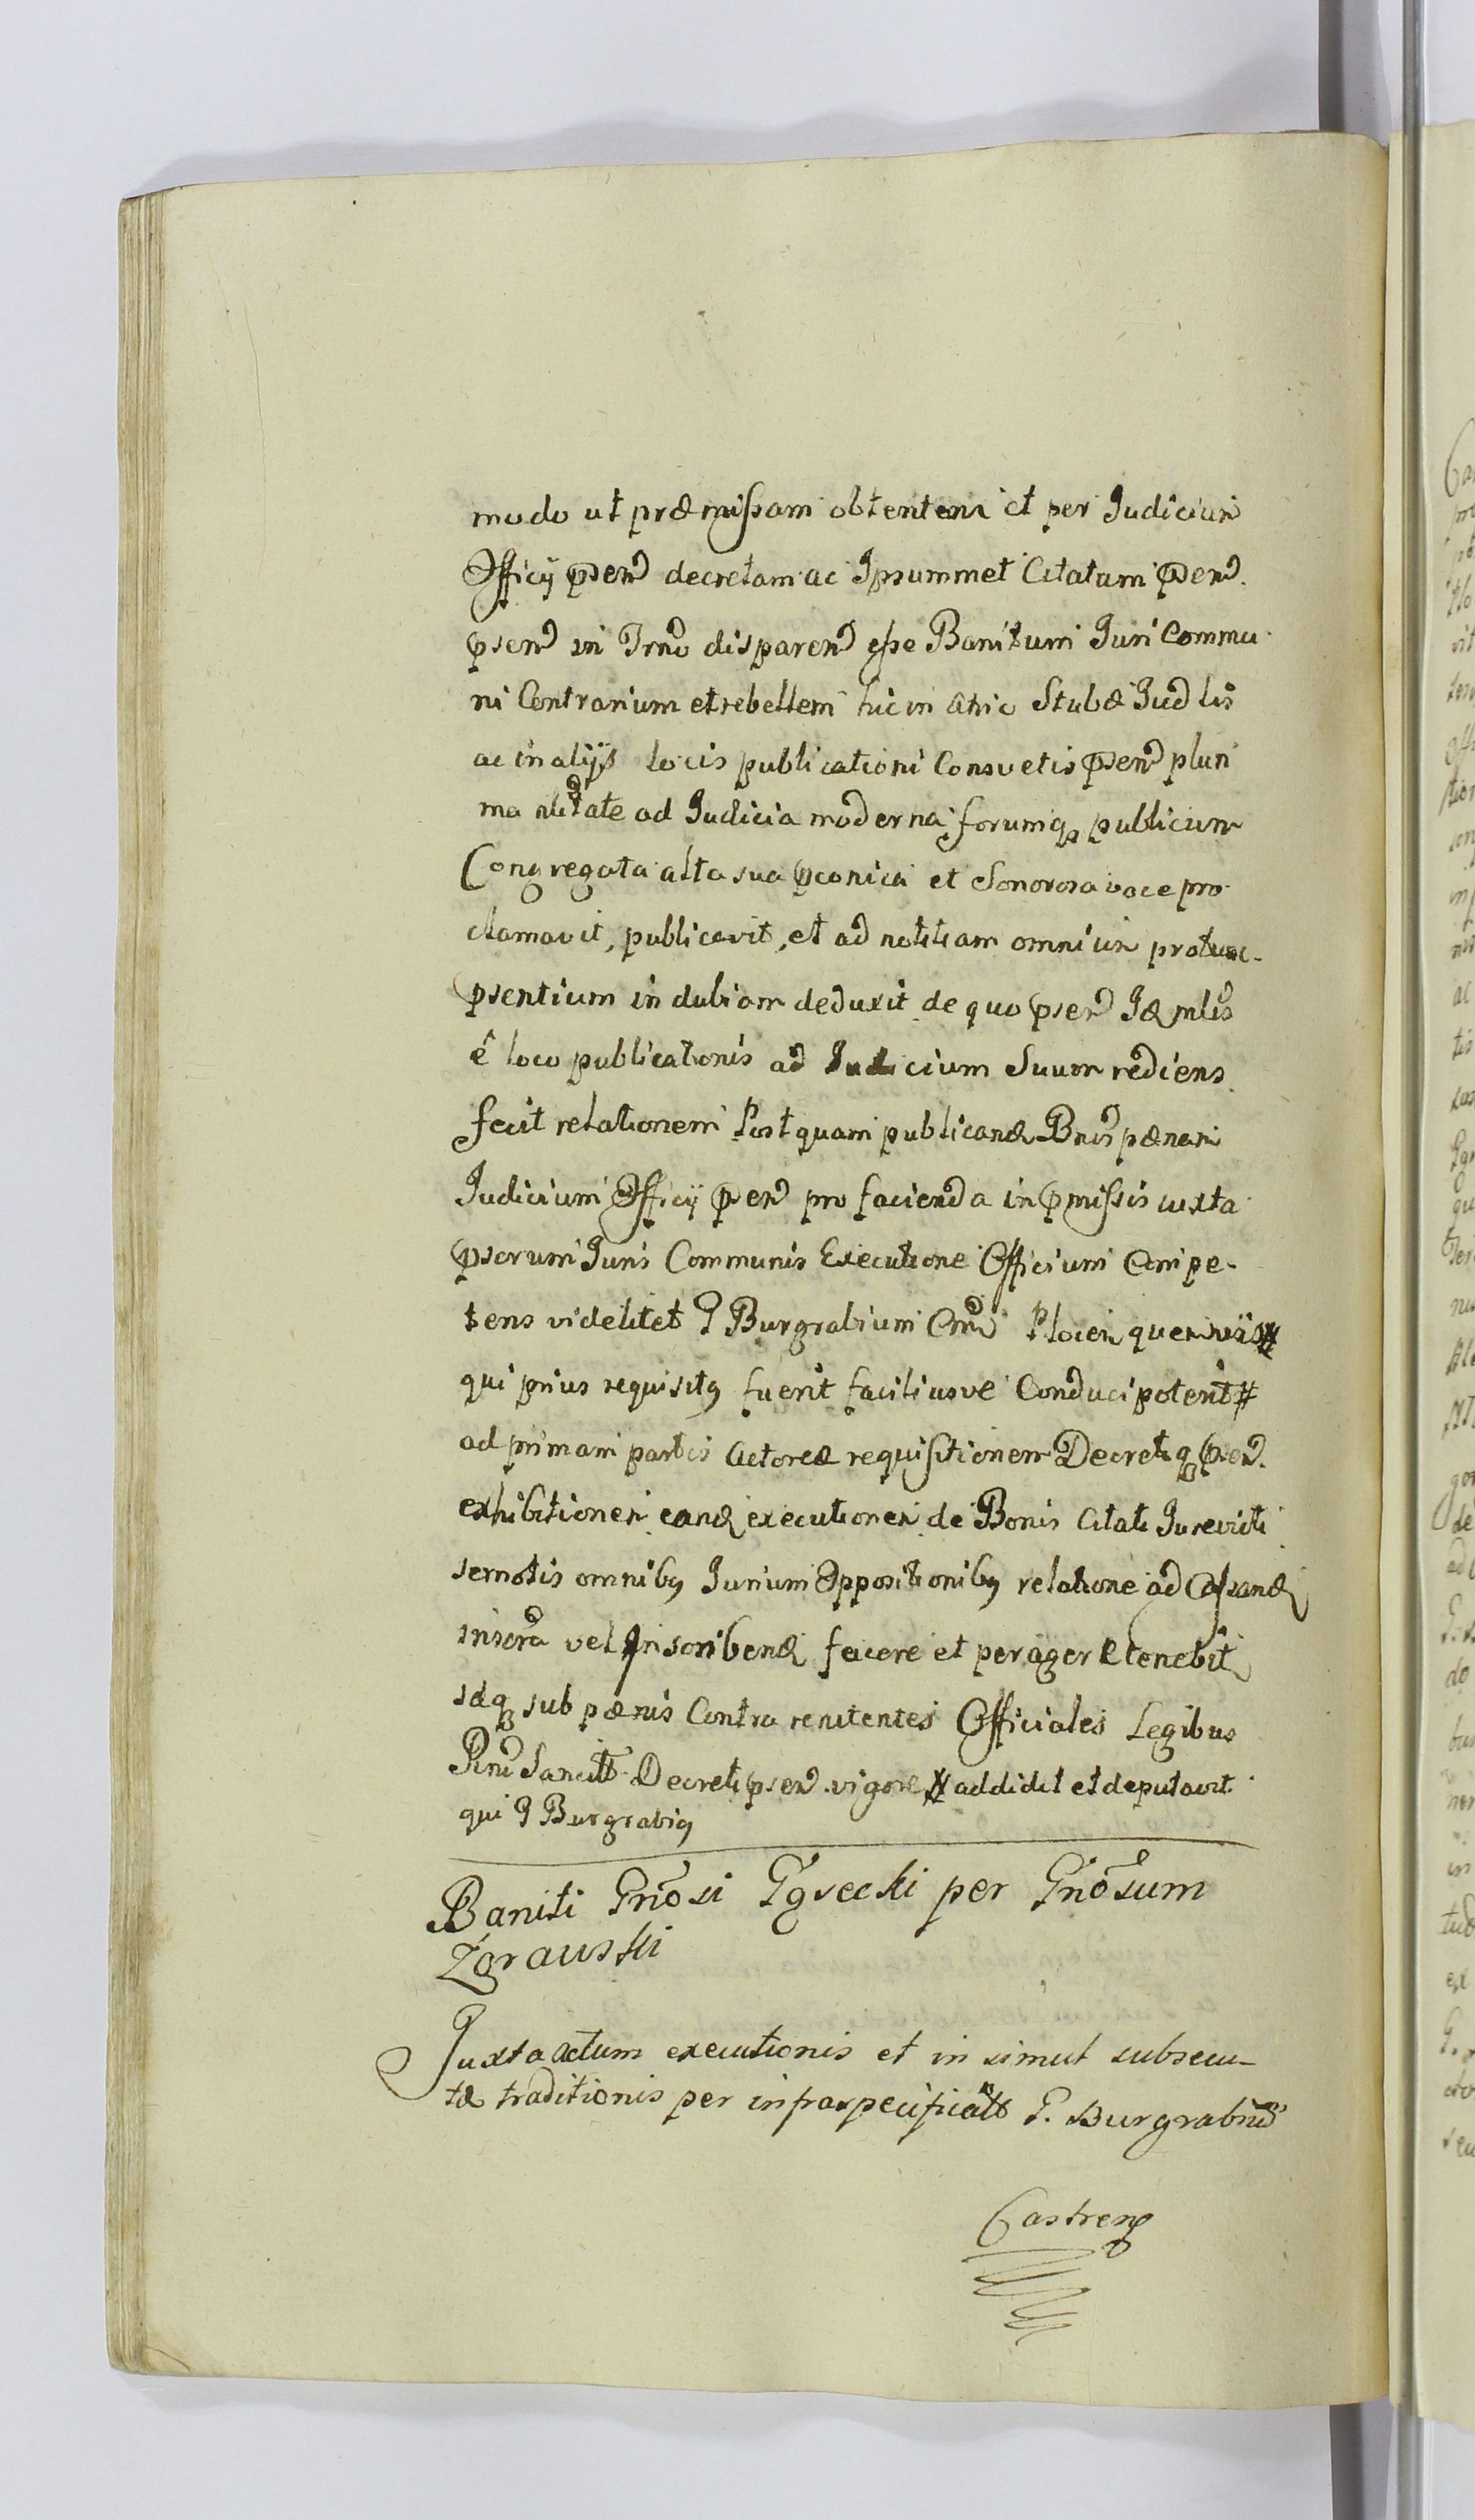 modo ut præmissam obtentam et per Judicium
Officÿ psen decretam ac Ipsummet Citatum psen.
psen in Trno disparen esse Banitum Juri Commu
ni Contrarium et rebellem hic in Atrio Stubæ Judlis
ac in alÿs locis publicationi Consvetis psen pluri
ma nbtate ad Judicia moderna forumq publicum
Congregata alta sua pconica et Sonorosa voce pro
clamavit, publicavit, et ad notitiam omnium protunc
psentium indubiam deduxit de quo psen Idæ mlis
è loco publicationis ad Judicium Suum rediens
fecit relationem Post quam publicand Bnis pænam
Judicium Officÿ psen pro facienda in pmissis iuxta
psorum Juris Communis Executione Officium Compe-
tens videlicet G Burgrabium Crn Plocen quemvis #
qui prius requisitq fuerit faciliusve Conduci poterit #
ad primam partis Actoreæ requisitionem Decretiq psen.
exhibitionem eand executionem de Bonis Citati Jurevicti
semotis omnibq Jurium Oppositionibq relatione ad Cassand
inscra vel Inscribend facere et peragere tenebit
idq sub pænis Contra renitentes Officiales Legibus
Rni Sancitt Decreti psen vigore # addidit et deputavit
qui G Burgrabiq
Baniti Gnosi Zgrecki per Gnosum
Zgrauski
Juxta actum executionis et in simul subsecu-
tæ traditionis per infraspecificatt G. Burgrabiu
Castren